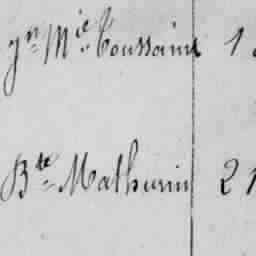 Jn Mie Toussaint 1
Bte Mathurin 21